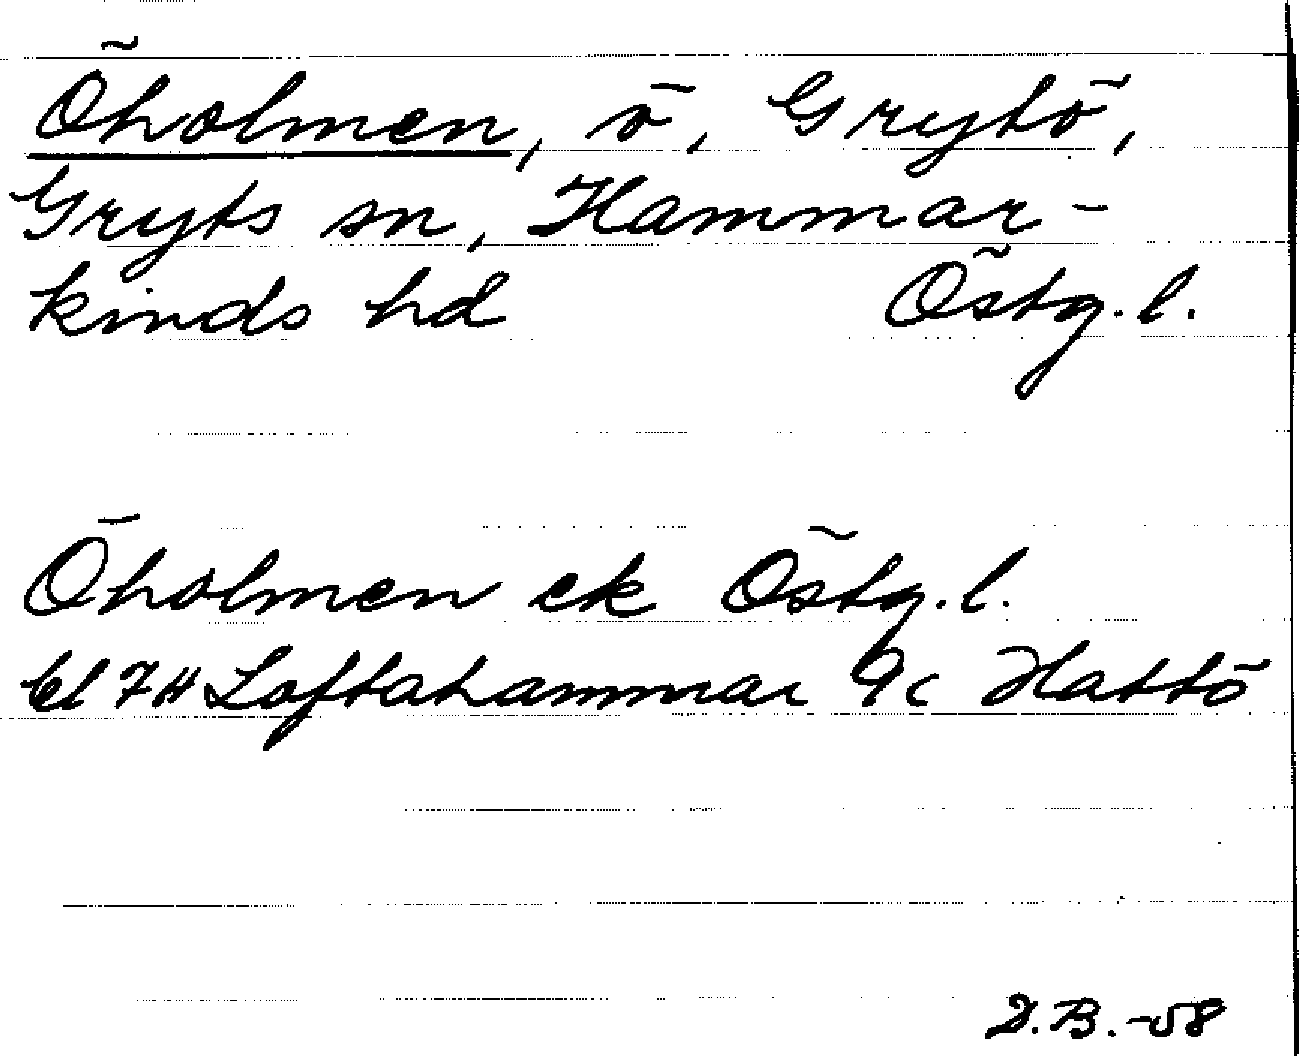 Öholmen, ö, Grytö,
Gryts sn, Hammar-
kinds hd Östg. l.
Öholmen ek Östg. l.
bl 7H Loftahammar 9c Hattö
D.B.-58